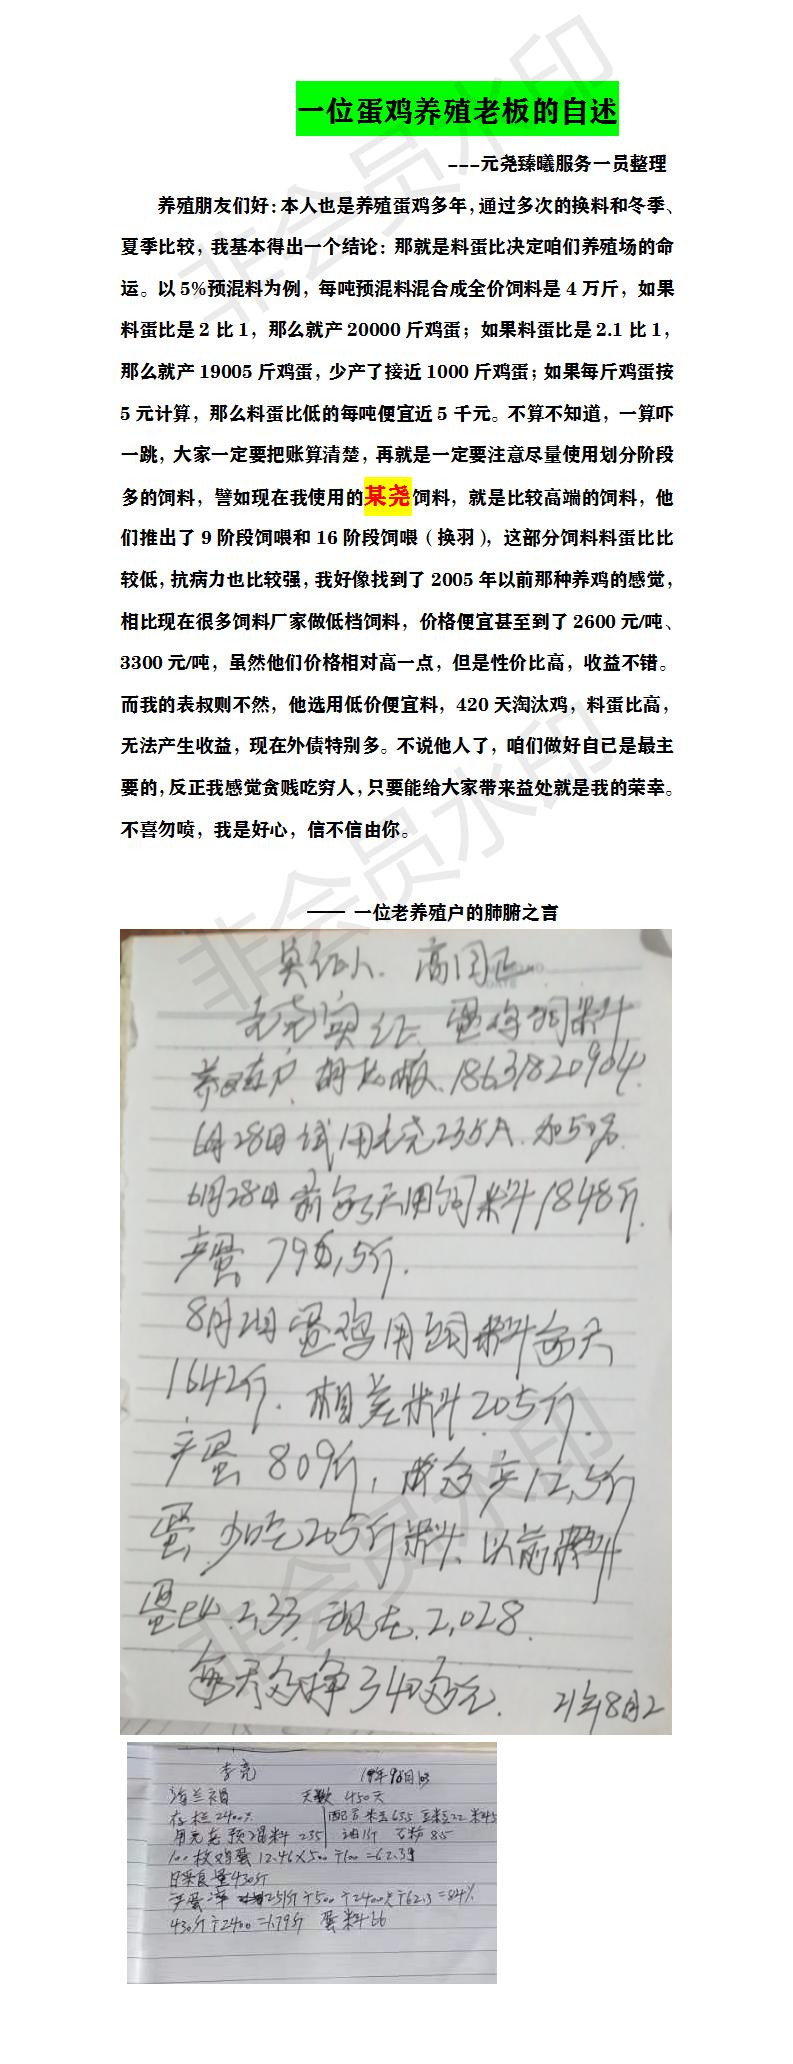 一位蛋鸡养殖老板的自述
---元尧臻曦服务一员整理
养殖朋友们好：本人也是养殖蛋鸡多年，通过多次的换料和冬季、
夏季比较，我基本得出一个结论：那就是料蛋比决定咱们养殖场的命
运。以5%预混料为例，每吨预混料混合成全价饲料是4万斤，如果
料蛋比是2比1，那么就产20000斤鸡蛋；如果料蛋比是2.1比1，
那么就产19005斤鸡蛋，少产了接近1000斤鸡蛋；如果每斤鸡蛋按
5元计算，那么料蛋比低的每吨便宜近5千元。不算不知道，一算吓
一跳，大家一定要把账算清楚，再就是一定要注意尽量使用划分阶段
多的饲料，譬如现在我使用的某尧饲料，就是比较高端的饲料，他
们推出了9阶段饲喂和16阶段饲喂（换羽），这部分饲料料蛋比比
较低，抗病力也比较强，我好像找到了2005年以前那种养鸡的感觉，
相比现在很多饲料厂家做低档饲料，价格便宜甚至到了2600元/吨、
3300元/吨，虽然他们价格相对高一点，但是性价比高，收益不错。
而我的表叔则不然，他选用低价便宜料，420天淘汰鸡，料蛋比高，
无法产生收益，现在外债特别多。不说他人了，咱们做好自己是最主
要的，反正我感觉贪贱吃穷人，只要能给大家带来益处就是我的荣幸。
不喜勿喷，我是好心，信不信由你。
—— 一位老养殖户的肺腑之言
实证人 高
元尧实证 蛋鸡饲料
养殖户 胡老板 18631820904
6月28日试用元尧235A 加5%
6月28日前每天用饲料1848斤
产蛋 796.5斤.
8月2日蛋鸡用饲料每天
1642斤. 相差料205斤.
产蛋809斤, 多产12.5斤
蛋 少吃205斤料、以前料
蛋比 2.33 现在.2.028.
每天多挣340多元. 21年8月2
李亮
海兰褐 天数 450天
存栏2400只 配方 玉米655 豆粕22
用元尧预混料 235 油1斤 石粉85
100枚鸡蛋 12.46×500÷100=62.3g
日采食量430斤
产蛋率 251斤÷500÷2400只÷62.3=84%
430斤÷2400=1.79斤 蛋料比
非会员水印
非会员水印
非会员水印